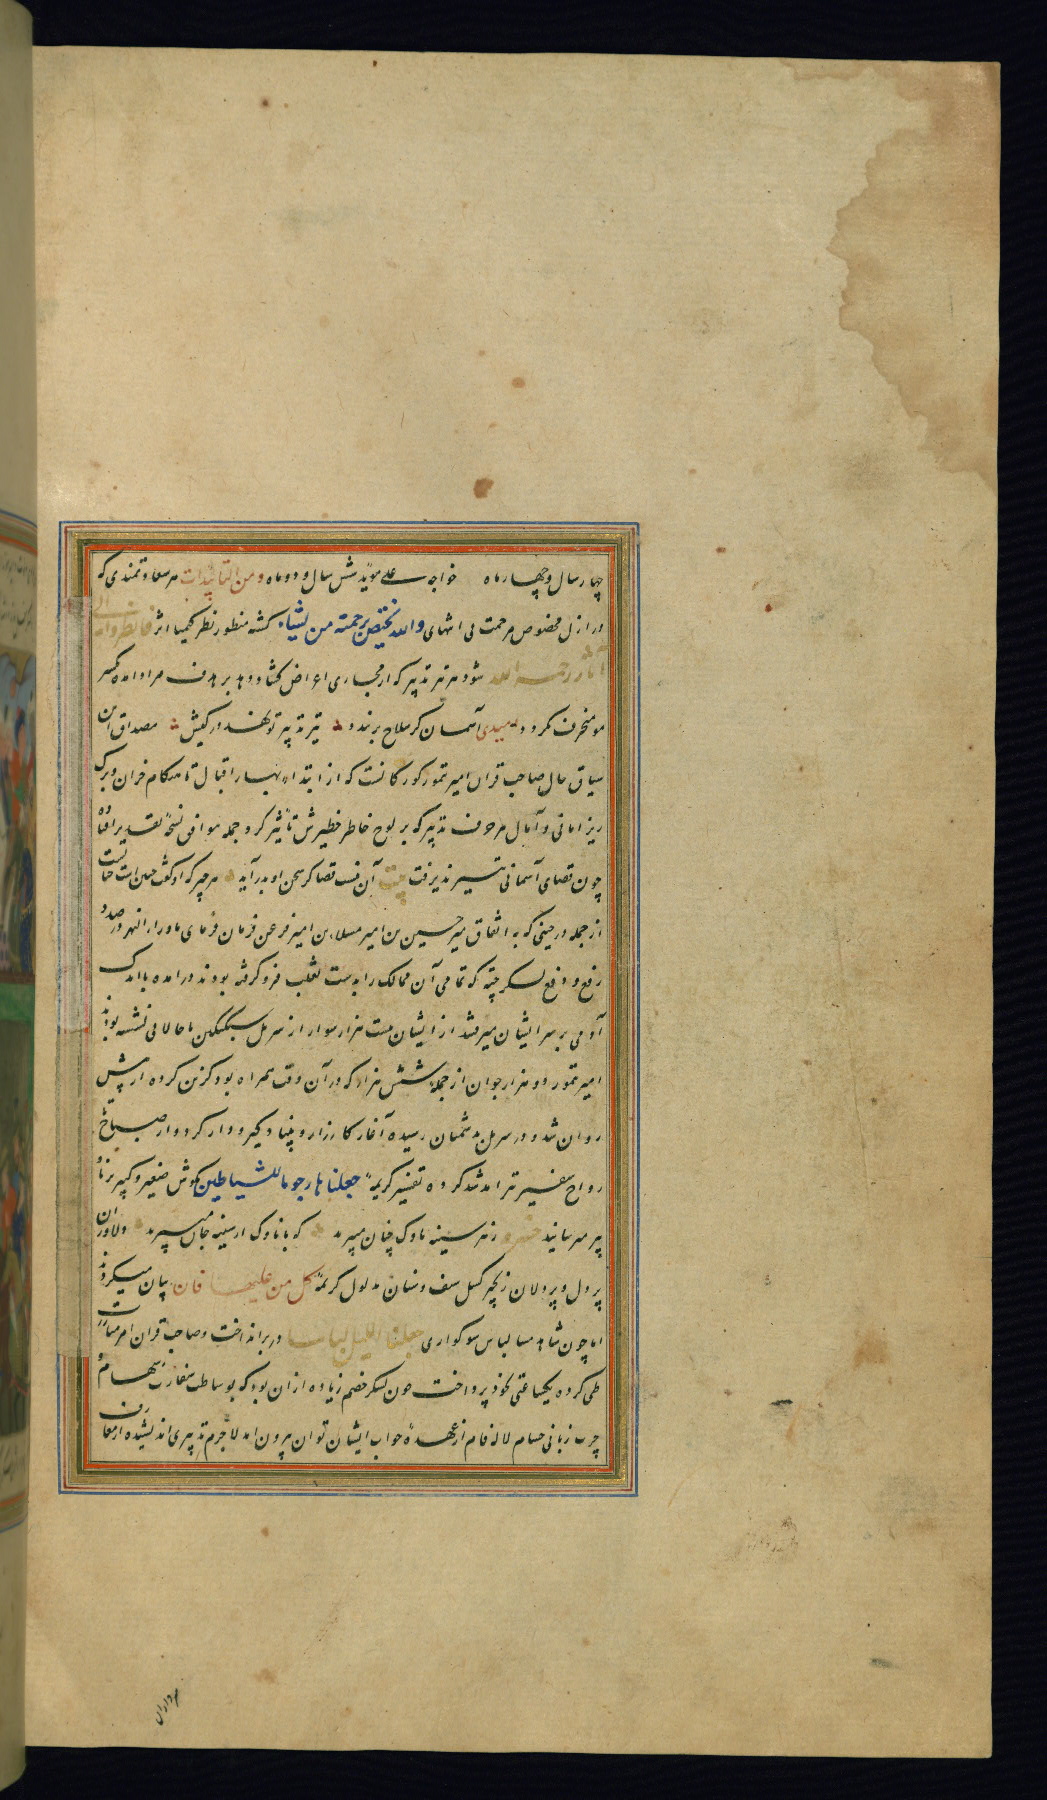 چهار سال و چهار ماه خواجه علی موید شش سال و دو ماه و من التائیدات هر سعادتمندی که
در ازل مخصوص مرحمت بی انتهای والله یختص برحمته من یشاء کشته منظور نظر کیمیا اثر فانظروا الی
آثار رحمة الله شود هر تیر تدبیر که از مجاری اغراض کشاد دهد بر هدف مراد آمده
مو منحرف نکردد امیدی آسمان کر سلاح بربندد تیر تدبیر تو نهد در کیش مصداق این
سیاق حال صاحب قران امیر تمور کورکانست که از ابتداء بهار اقبال تا هنکام خزان و برک
ریز امانی و آمال هر حرف تدبیر که بر لوح خاطر خطیرش تأثیر کرد جمله موافق نسخهٔ تقدیر افتاده
چون قضای آسمانی تغییر نپذیرفت بیت آن نفس قضا کز سخن او بدر آید هر چیز که او کفت همان است
از جمله در حینی که به اتفاق میر حسین بن امیر مسلا بن امیر قزغن فرمان فرمای ماوراء النهر در صدد
رفع و دفع لشکر جته که تمامی آن ممالک را بدست تغلب فرو کرفته بودند در آمده با اندک
آدمی بر سر ایشان میرفتند از ایشان بیست هزار سوار از سر پل سنکین تا حالا فی نشسته بودند
امیر تمور دو هزار جوان از جملهٔ شش هزار که در آن وقت همراه بود کزین کرده از پیش
روان شد و در سر پل بدشمنان رسیده آغاز کارزار و بنیاد کیر و دار کرد و از صباح تا
رواح سفیر تیر آمد شد کرده تفسیر کریمهٔ جعلناها رجوما للشیاطین بکوش صغیر و کبیر برنا و
پیر میرسانید زهر سینه ناوک چنان میپرید که با ناوک از سینه جان میپرید دلاوران
پر دل و پردلان زنجیر کسل سیف و سنان مدلول کریمهٔ کل من علیها فان بیان میکردند
اما چون شاهد مسا لباس سوکواری جعلنا اللیل لباسا در بر انداخت و صاحب قران امر مبارزت
طی کرده یکساعتی بخود پرداخت چون لشکر خصم زیاده از آن بود که بوساطت سفارت سهام و
چرب زبانی حسام لاله فام از عهدهٔ جواب ایشان توان بیرون آمد لاجرم تدبیری اندیشیده از معارف